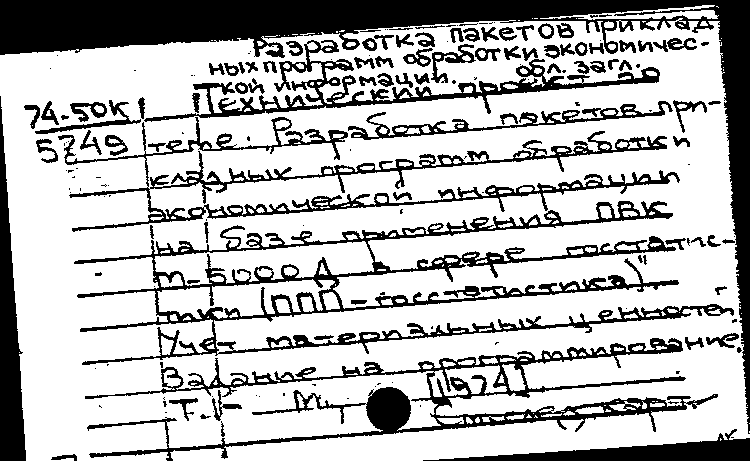 Разработка пакетов приклад
ных программ обработки экономичес-
кой информации. обл. загл.
74-50К Технический проект по
5749 теме: „Разработка пакетов при-
кладных программ обработки
экономической информации
на базе применения ПВК
М-5000 Д в сфере госстатис-
тики (ППП-госстатистика)".
Учет материальных ценностей.
Задание на программирование.
Т.V- М., [1974]
См.след.карт.